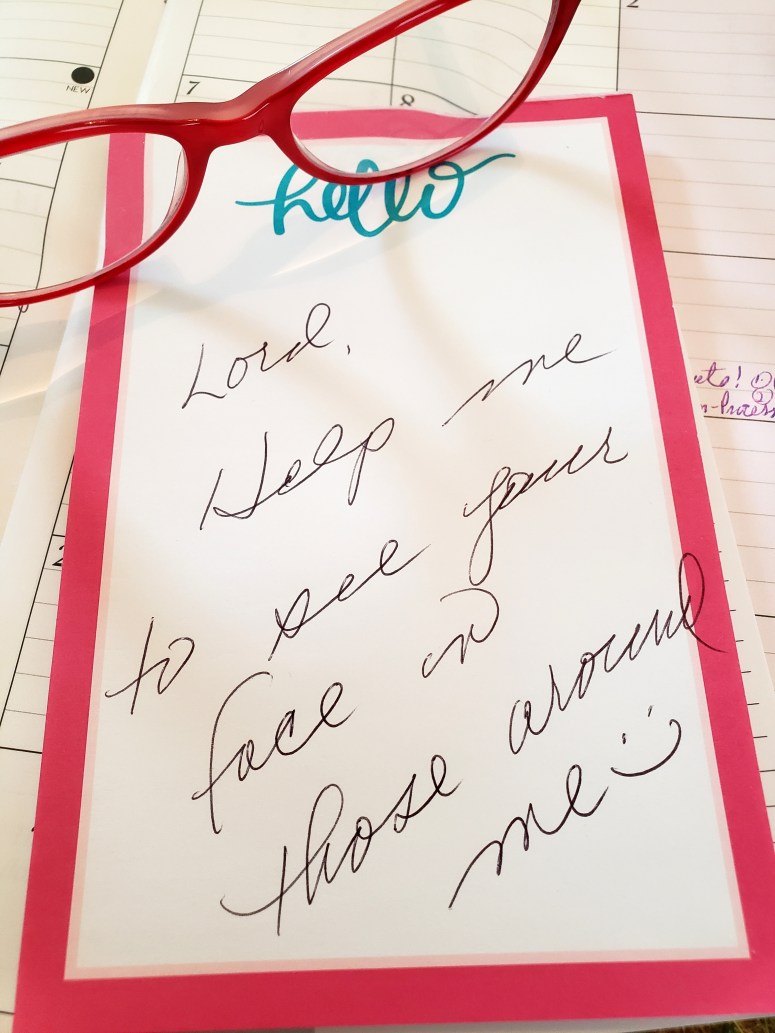 NEW
7
8
2
hello
Lord,
Help me
to see your
face in
those around
me
2